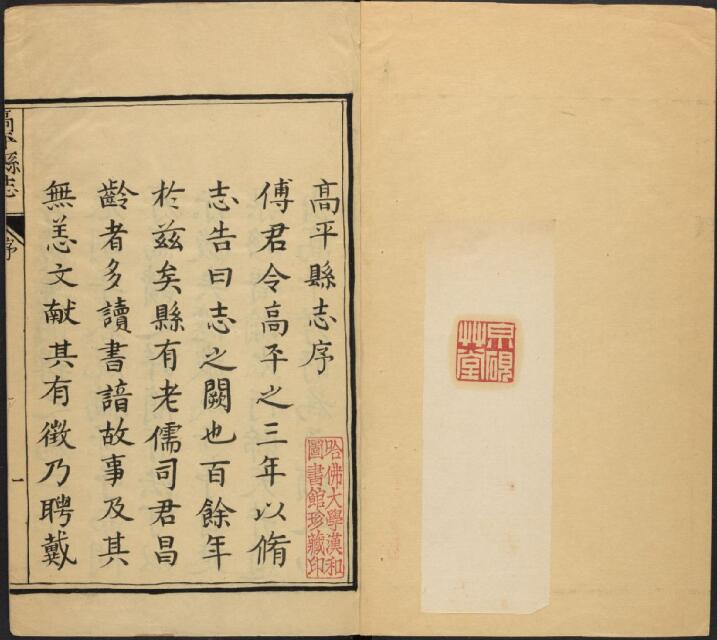 高平縣志序
傅君令高平之三年以脩
志告曰志之闕也百餘年
於茲矣縣有老儒司君昌
齡者多讀書諳故事及其
無恙文献其有徵乃聘戴
高平縣志
序
一
哈佛大學漢和
圖書館珍藏印